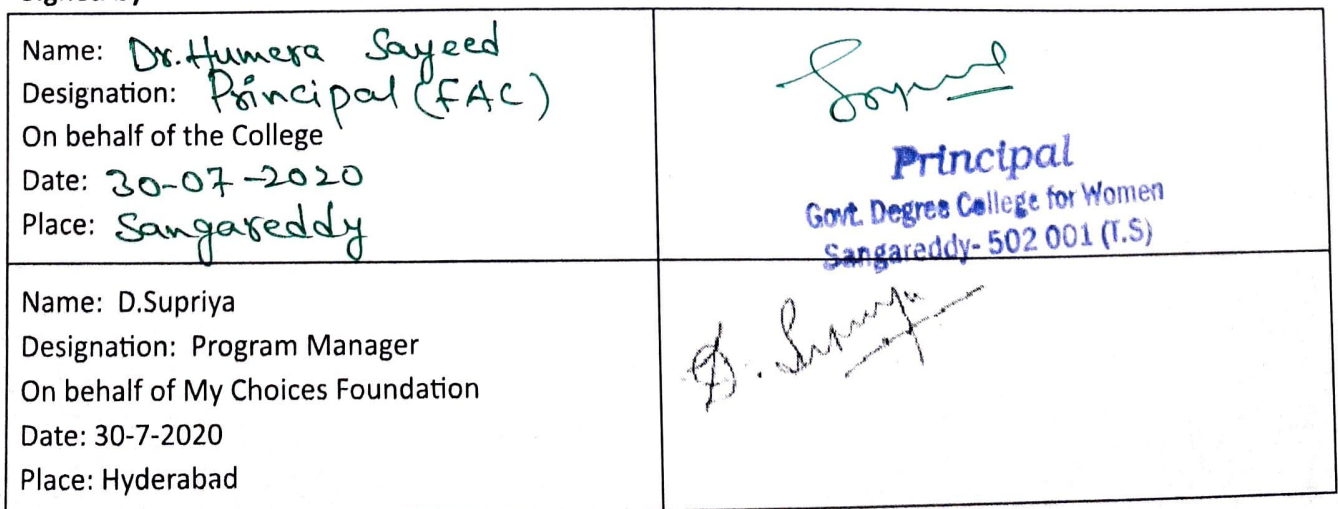 Name: Dr. Humera Sayeed
Designation: Principal (FAC)
On behalf of the College
Date: 30-07-2020
Place: Sangareddy
Principal
Govt. Degree College for Women
Sangareddy- 502 001 (T.S)
Name: D.Supriya
Designation: Program Manager
On behalf of My Choices Foundation
Date: 30-7-2020
Place: Hyderabad
D. Supriya